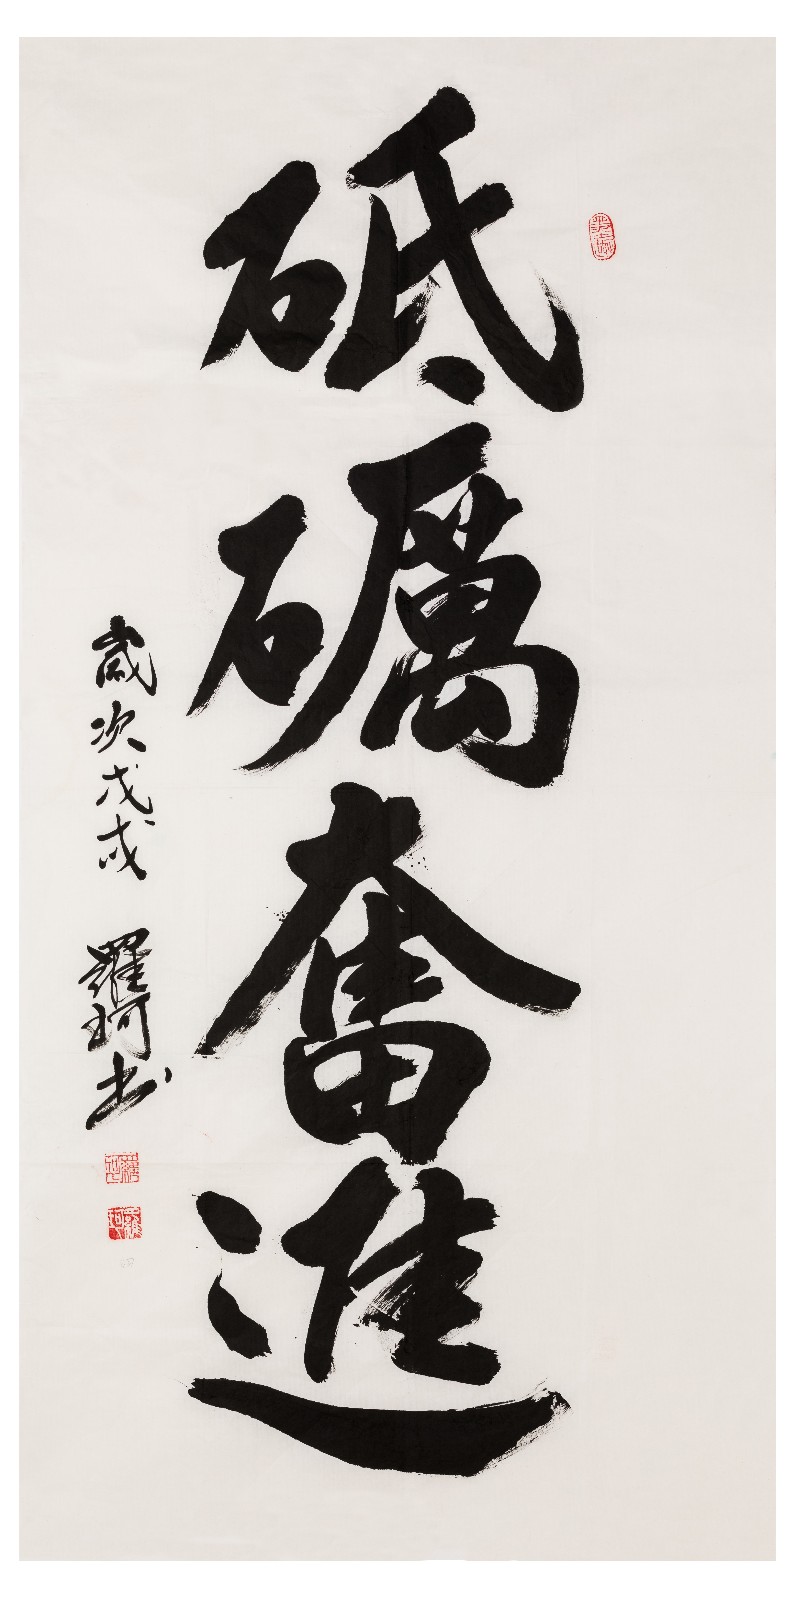 砥礪奮進
歲次戊戌 羅珂书